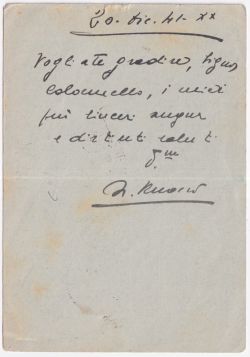 20. Dic. 41. XX
Vogliate gradire, Signor
Colonnello, i miei
più sinceri auguri
e distinti saluti